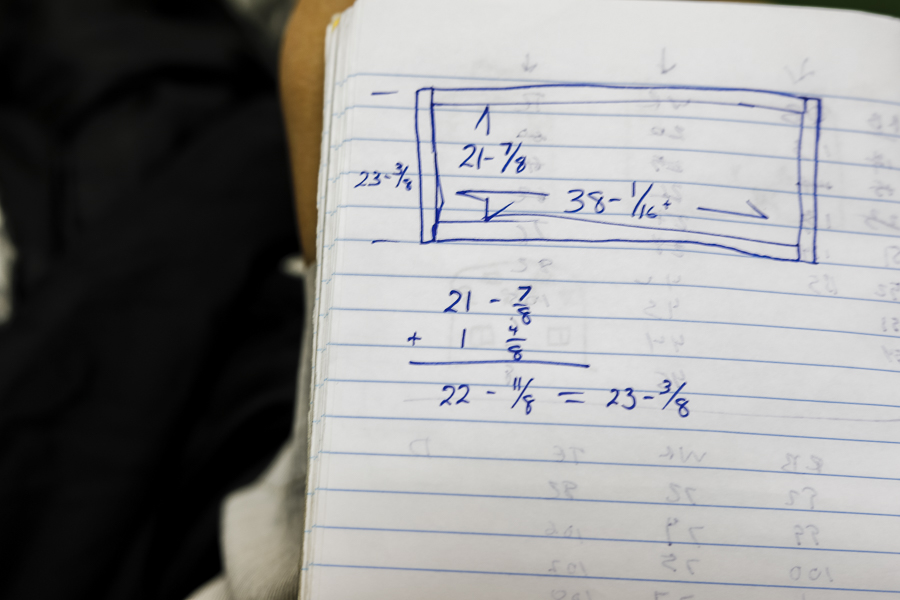 21-7/8
23-3/8
38-1/16+
21 - 7/8
+ 1 4/8
22 - 11/8 = 23-3/8